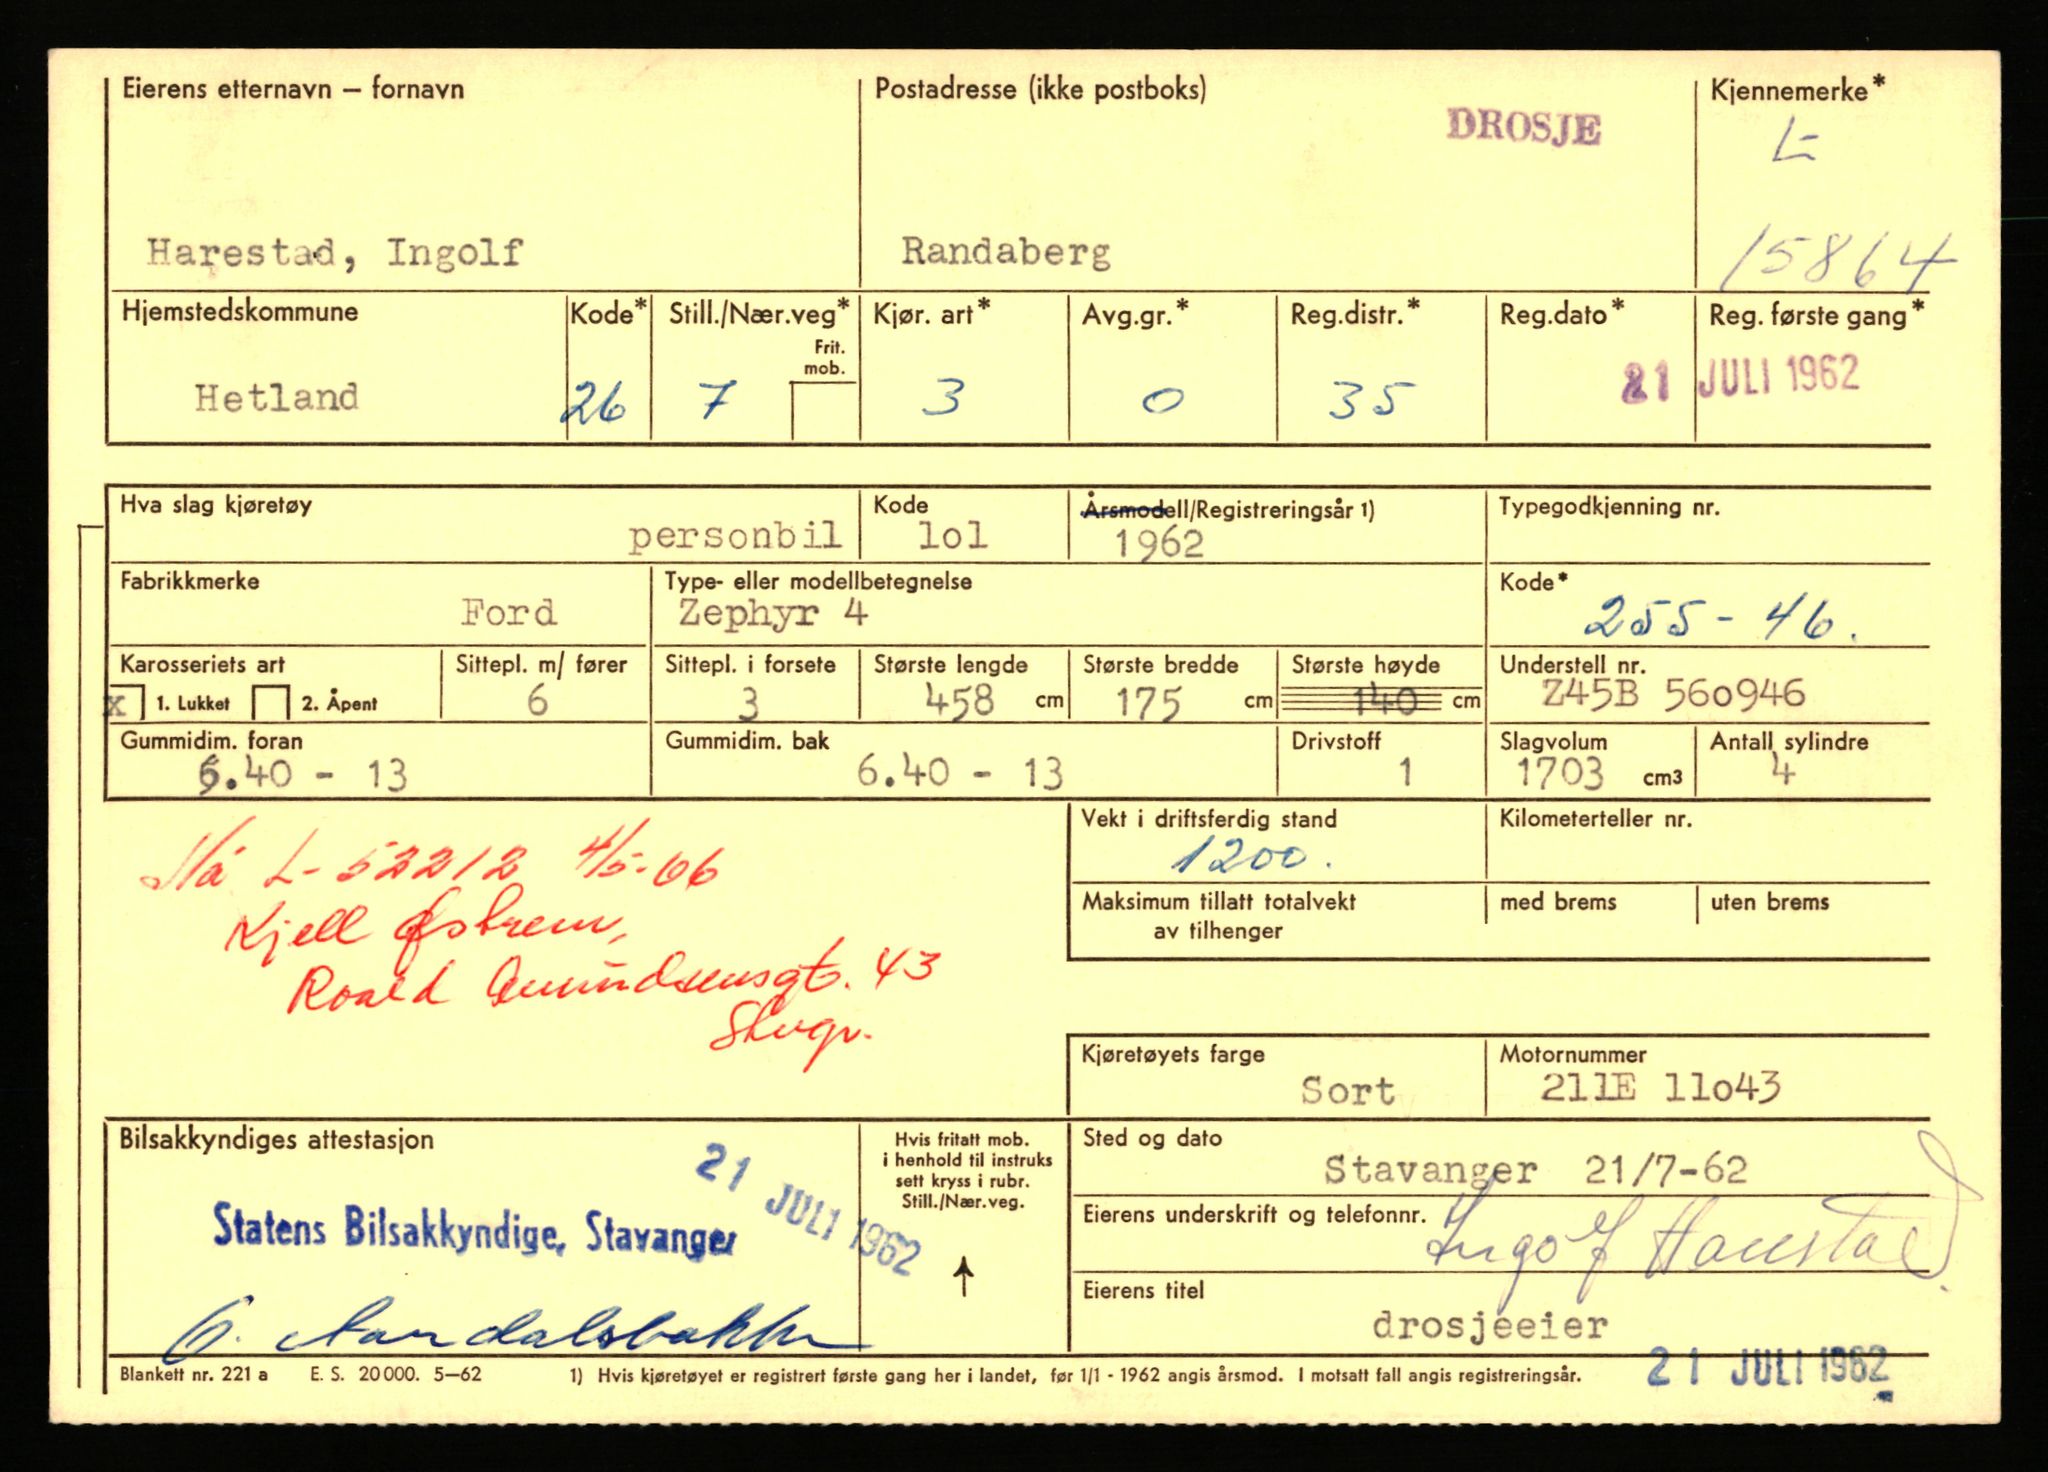 Eierens etternavn – fornavn
Postadresse (ikke postboks)
DROSJE
Kjennemerke*
L-
Harestad, Ingolf
Randaberg
15864
Hjemstedskommune
Kode*
Still./Nær.veg*
Frit. mob.
Kjør. art*
Avg.gr.*
Reg.distr.*
Reg.dato*
Reg. første gang*
Hetland
26
7
3
0
35
21 JULI 1962
Hva slag kjøretøy
personbil
Kode
lol
Årsmodell/Registreringsår 1)
1962
Typegodkjenning nr.
Fabrikkmerke
Ford
Type- eller modellbetegnelse
Zephyr 4
Kode*
255-46.
Karosseriets art
x 1. Lukket 2. Åpent
Sittepl. m/ fører
6
Sittepl. i forsete
3
Største lengde
458 cm
Største bredde
175 cm
Største høyde
140 cm
Understell nr.
Z45B 560946
Gummidim. foran
6.40 - 13
Gummidim. bak
6.40 - 13
Drivstoff
1
Slagvolum
1703 cm3
Antall sylindre
4
Vekt i driftsferdig stand
1200.
Kilometerteller nr.
Maksimum tillatt totalvekt
av tilhenger
med brems
uten brems
Nå L-52212 4/5-66
Kjell Østrem,
Roald Amundsensgt. 43
Stvgr.
Kjøretøyets farge
Sort
Motornummer
211E 11o43
Bilsakkyndiges attestasjon
21 JULI 1962
Statens Bilsakkyndige, Stavanger
Hvis fritatt mob.
i henhold til instruks
sett kryss i rubr.
Still./Nær.veg.
Sted og dato
Stavanger 21/7-62
Eierens underskrift og telefonnr.
Ingolf Harestad
Eierens titel
drosjeeier
Blankett nr. 221 a E. S. 20 000. 5–62
1) Hvis kjøretøyet er registrert første gang her i landet, før 1/1 - 1962 angis årsmod. I motsatt fall angis registreringsår.
21 JULI 1962